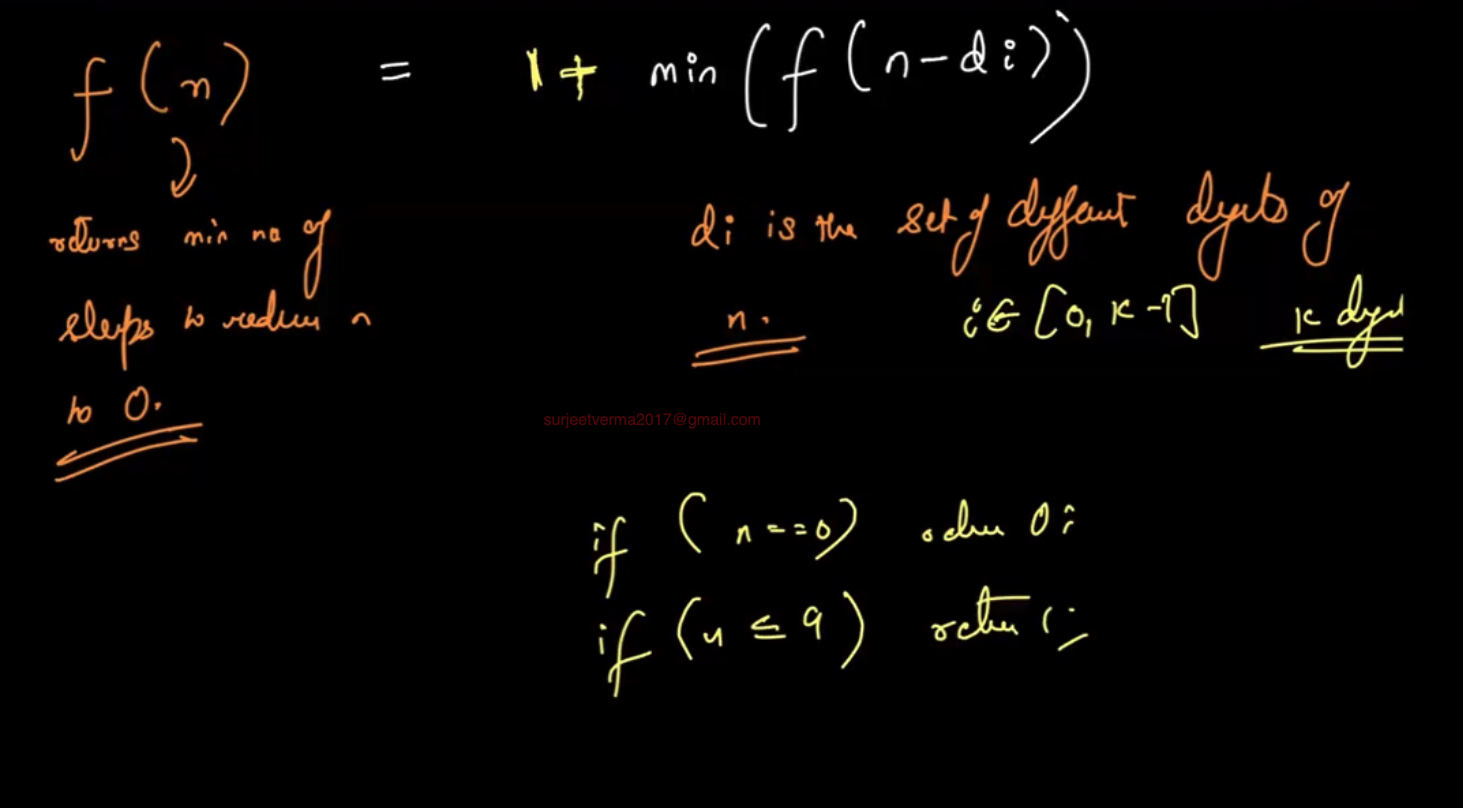 f(n) = 1 + min(f(n-di))
returns min no of
steps to reduce n
to 0.
di is the set of different digits of
n. i ∈ [0, k-1] k digit
surjeetverma2017@gmail.com
if (n==0) return 0;
if (n ≤ 9) return 1;